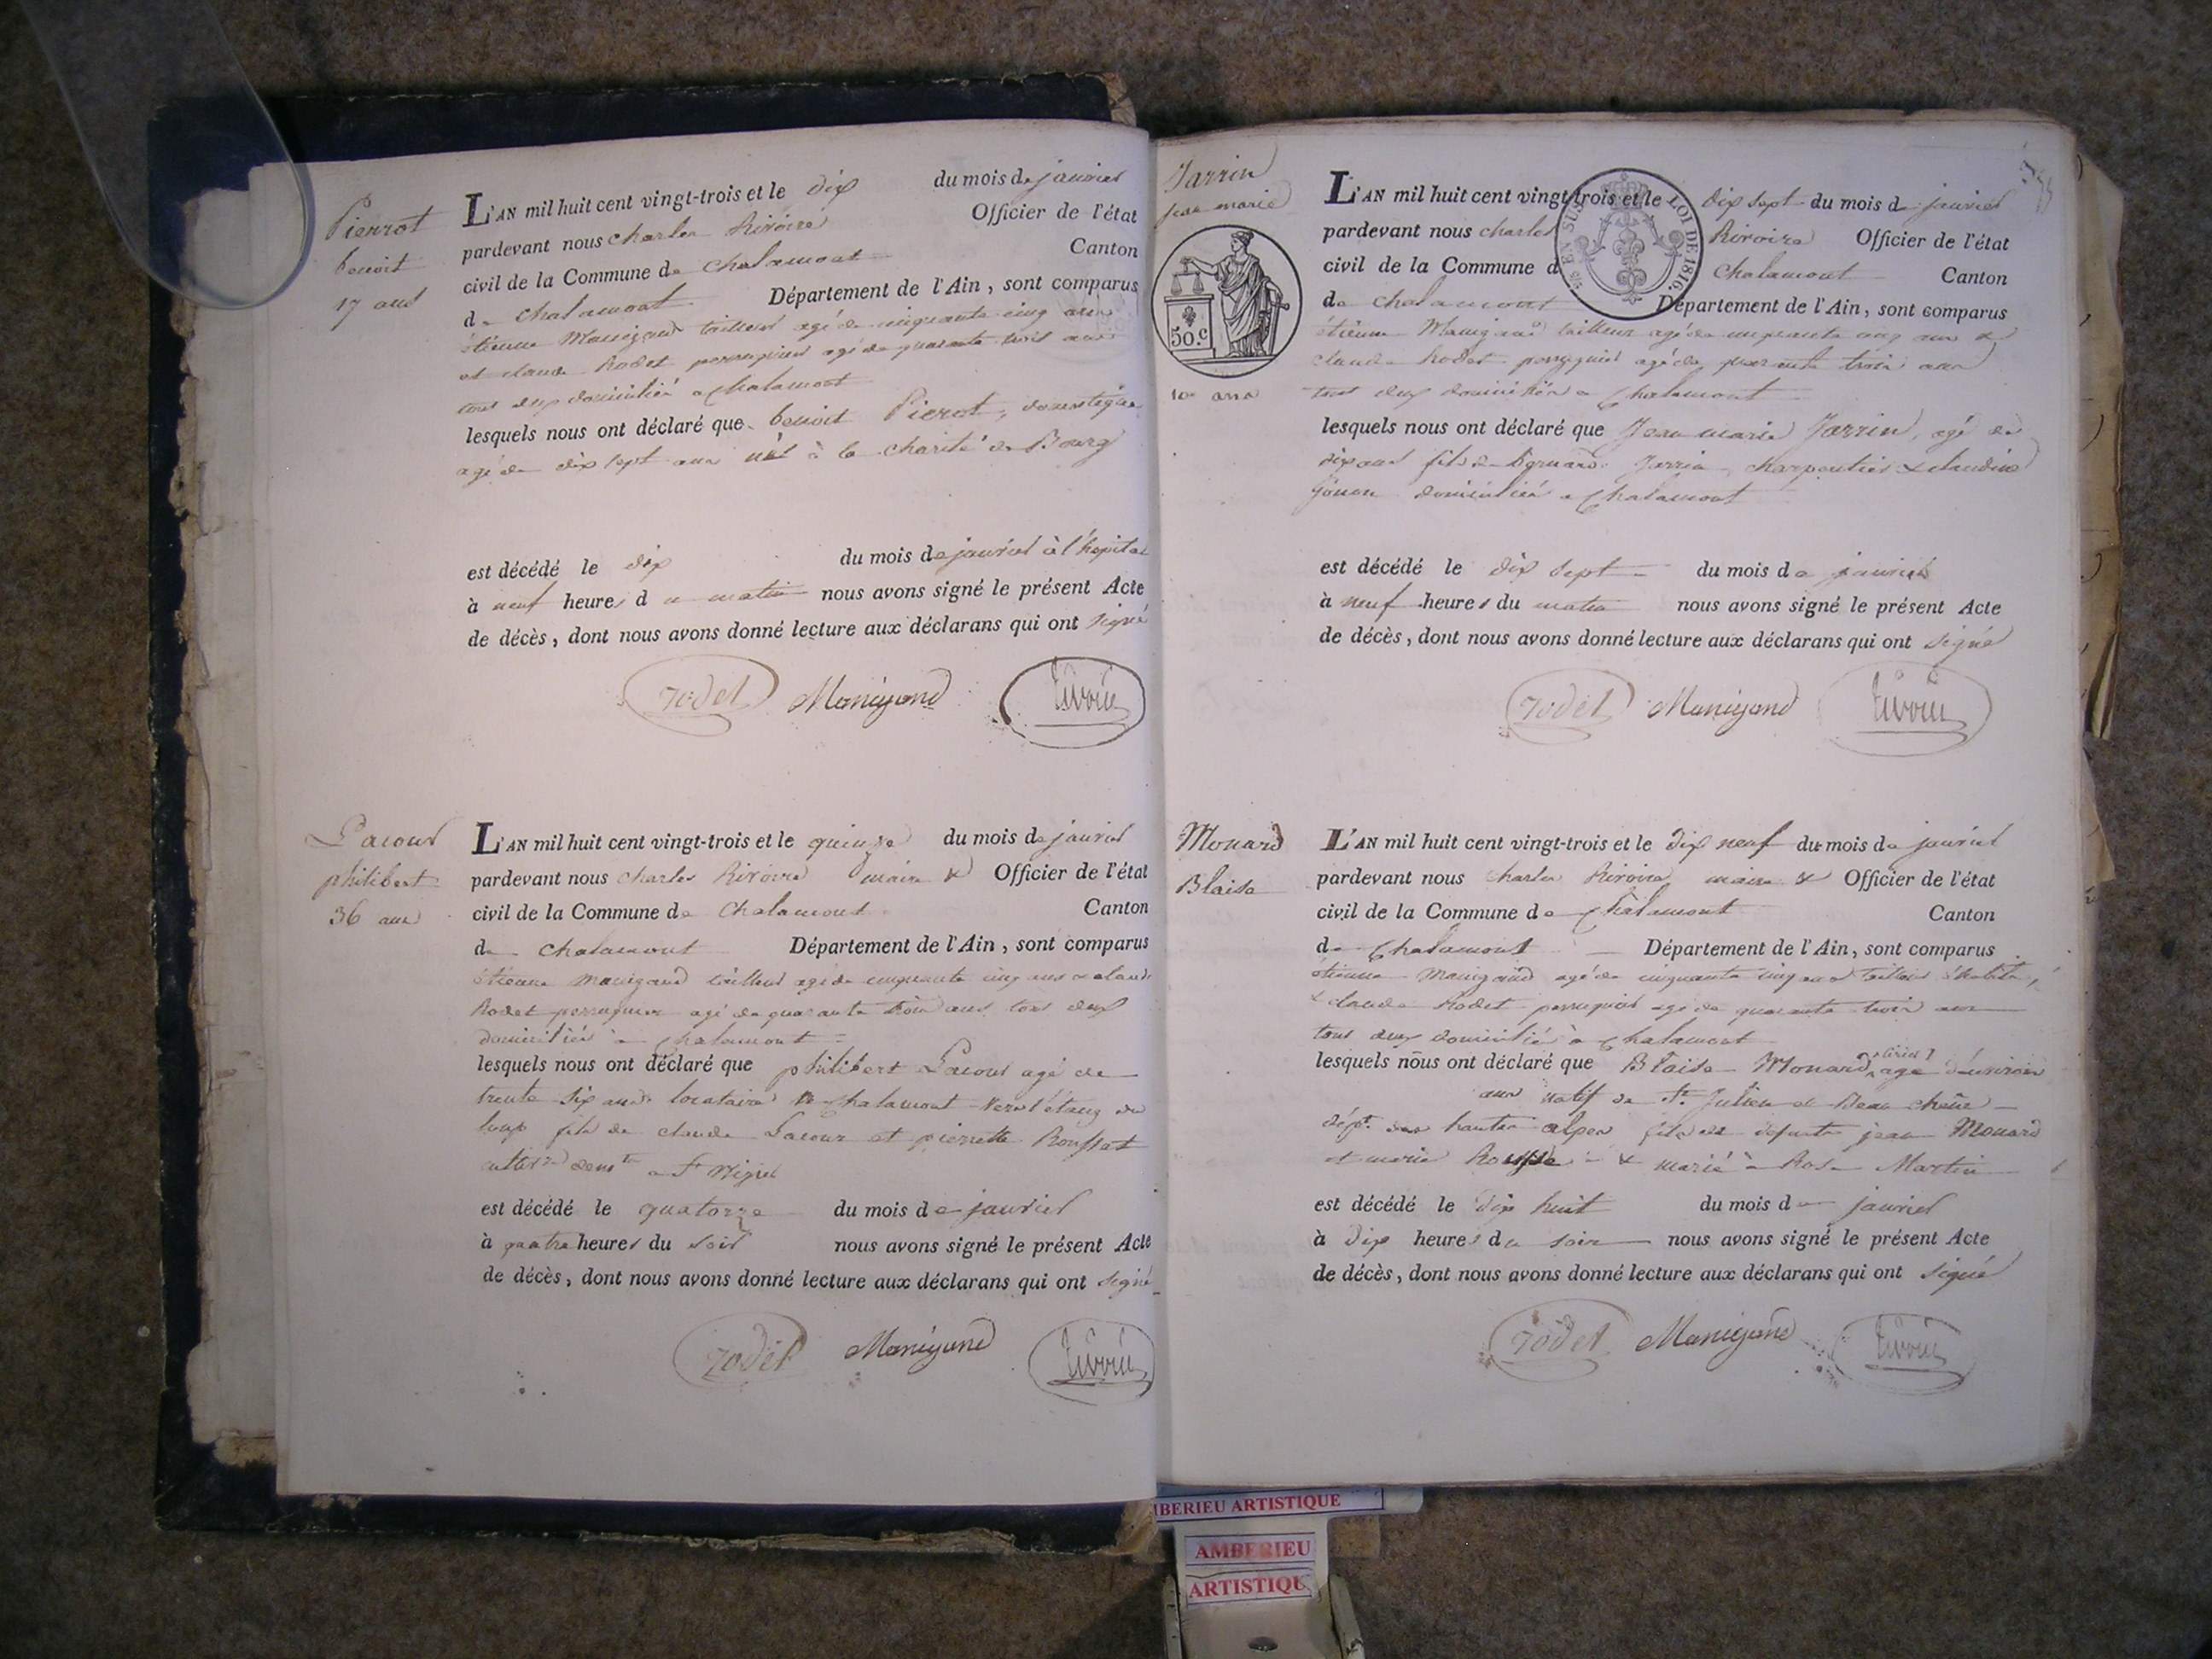 Pierrot
benoit
17 ans
L'AN mil huit cent vingt-trois et le dix du mois de janvier
pardevant nous charles Rivoire Officier de l'état
civil de la Commune de chalamont Canton
de chalamont Département de l'Ain, sont comparus
étienne Manigand tailleur agé de cinquante cinq ans
et claude Rodet perruquier agé de quarante trois ans
tous deux domiciliés a chalamont
lesquels nous ont déclaré que benoit Pierot, domestique
agé de dix sept ans né à la charité de Bourg
est décédé le dix du mois de janvier à l'hopital
à neuf heures du matin nous avons signé le présent Acte
de décès, dont nous avons donné lecture aux déclarans qui ont signé
rodet Manigand rivoire
Lacour
philibert
36 ans
L'AN mil huit cent vingt-trois et le quinze du mois de janvier
pardevant nous Charles Rivoire maire & Officier de l'état
civil de la Commune de Chalamont Canton
de chalamont Département de l'Ain, sont comparus
étienne manigand tailleur agé de cinquante cinq ans & claude
Rodet perruquier agé de quarante trois ans tous deux
domiciliés à chalamont
lesquels nous ont déclaré que philibert Lacour agé de
trente six ans locataire à chalamont vers l'étang du
loup fils de claude Lacour et pierrette Rouffat
a St
est décédé le quatorze du mois de janvier
à quatre heures du soir nous avons signé le présent Acte
de décès, dont nous avons donné lecture aux déclarans qui ont signé
rodet Manigand rivoire
Jarrin
jean marie
50.C
10 ans
L'AN mil huit cent vingt-trois et le dix sept du mois de janvier
EN SUS LOI DE 1816.
pardevant nous charles Rivoire Officier de l'état
civil de la Commune d Chalamont Canton
de chalamont Département de l'Ain, sont comparus
étienne Manigand tailleur agé de cinquante cinq ans &
claude Rodet perruquier agé de quarante trois ans
tous deux domiciliés a chalamont
lesquels nous ont déclaré que Jean marie Jarrin, agé de
dix ans fils de Jarrin charpentier & claudine
domiciliés a chalamont
est décédé le dix sept du mois de janvier
à neuf heures du matin nous avons signé le présent Acte
de décès, dont nous avons donné lecture aux déclarans qui ont signé
rodet Manigand rivoire
Monard
Blaise
L'AN mil huit cent vingt-trois et le dix neuf du mois de janvier
pardevant nous charles Rivoire maire & Officier de l'état
civil de la Commune de chalamont Canton
de chalamont Département de l'Ain, sont comparus
étienne Manigand agé de cinquante cinq ans tailleur d'habits,
& claude Rodet perruquier agé de quarante trois ans
tous deux domiciliés à chalamont
lesquels nous ont déclaré que Blaise Monard, agé d'environ
ans natif de St. Julien en Beau chêne
dépt. des hautes alpes fils de défunts jean Monard
et marie Rousse & marié à Rose Martin
est décédé le dix huit du mois de janvier
à dix heures du soir nous avons signé le présent Acte
de décès, dont nous avons donné lecture aux déclarans qui ont signé
rodet Manigand rivoire
MBERIEU ARTISTIQUE
AMBERIEU
ARTISTIQU